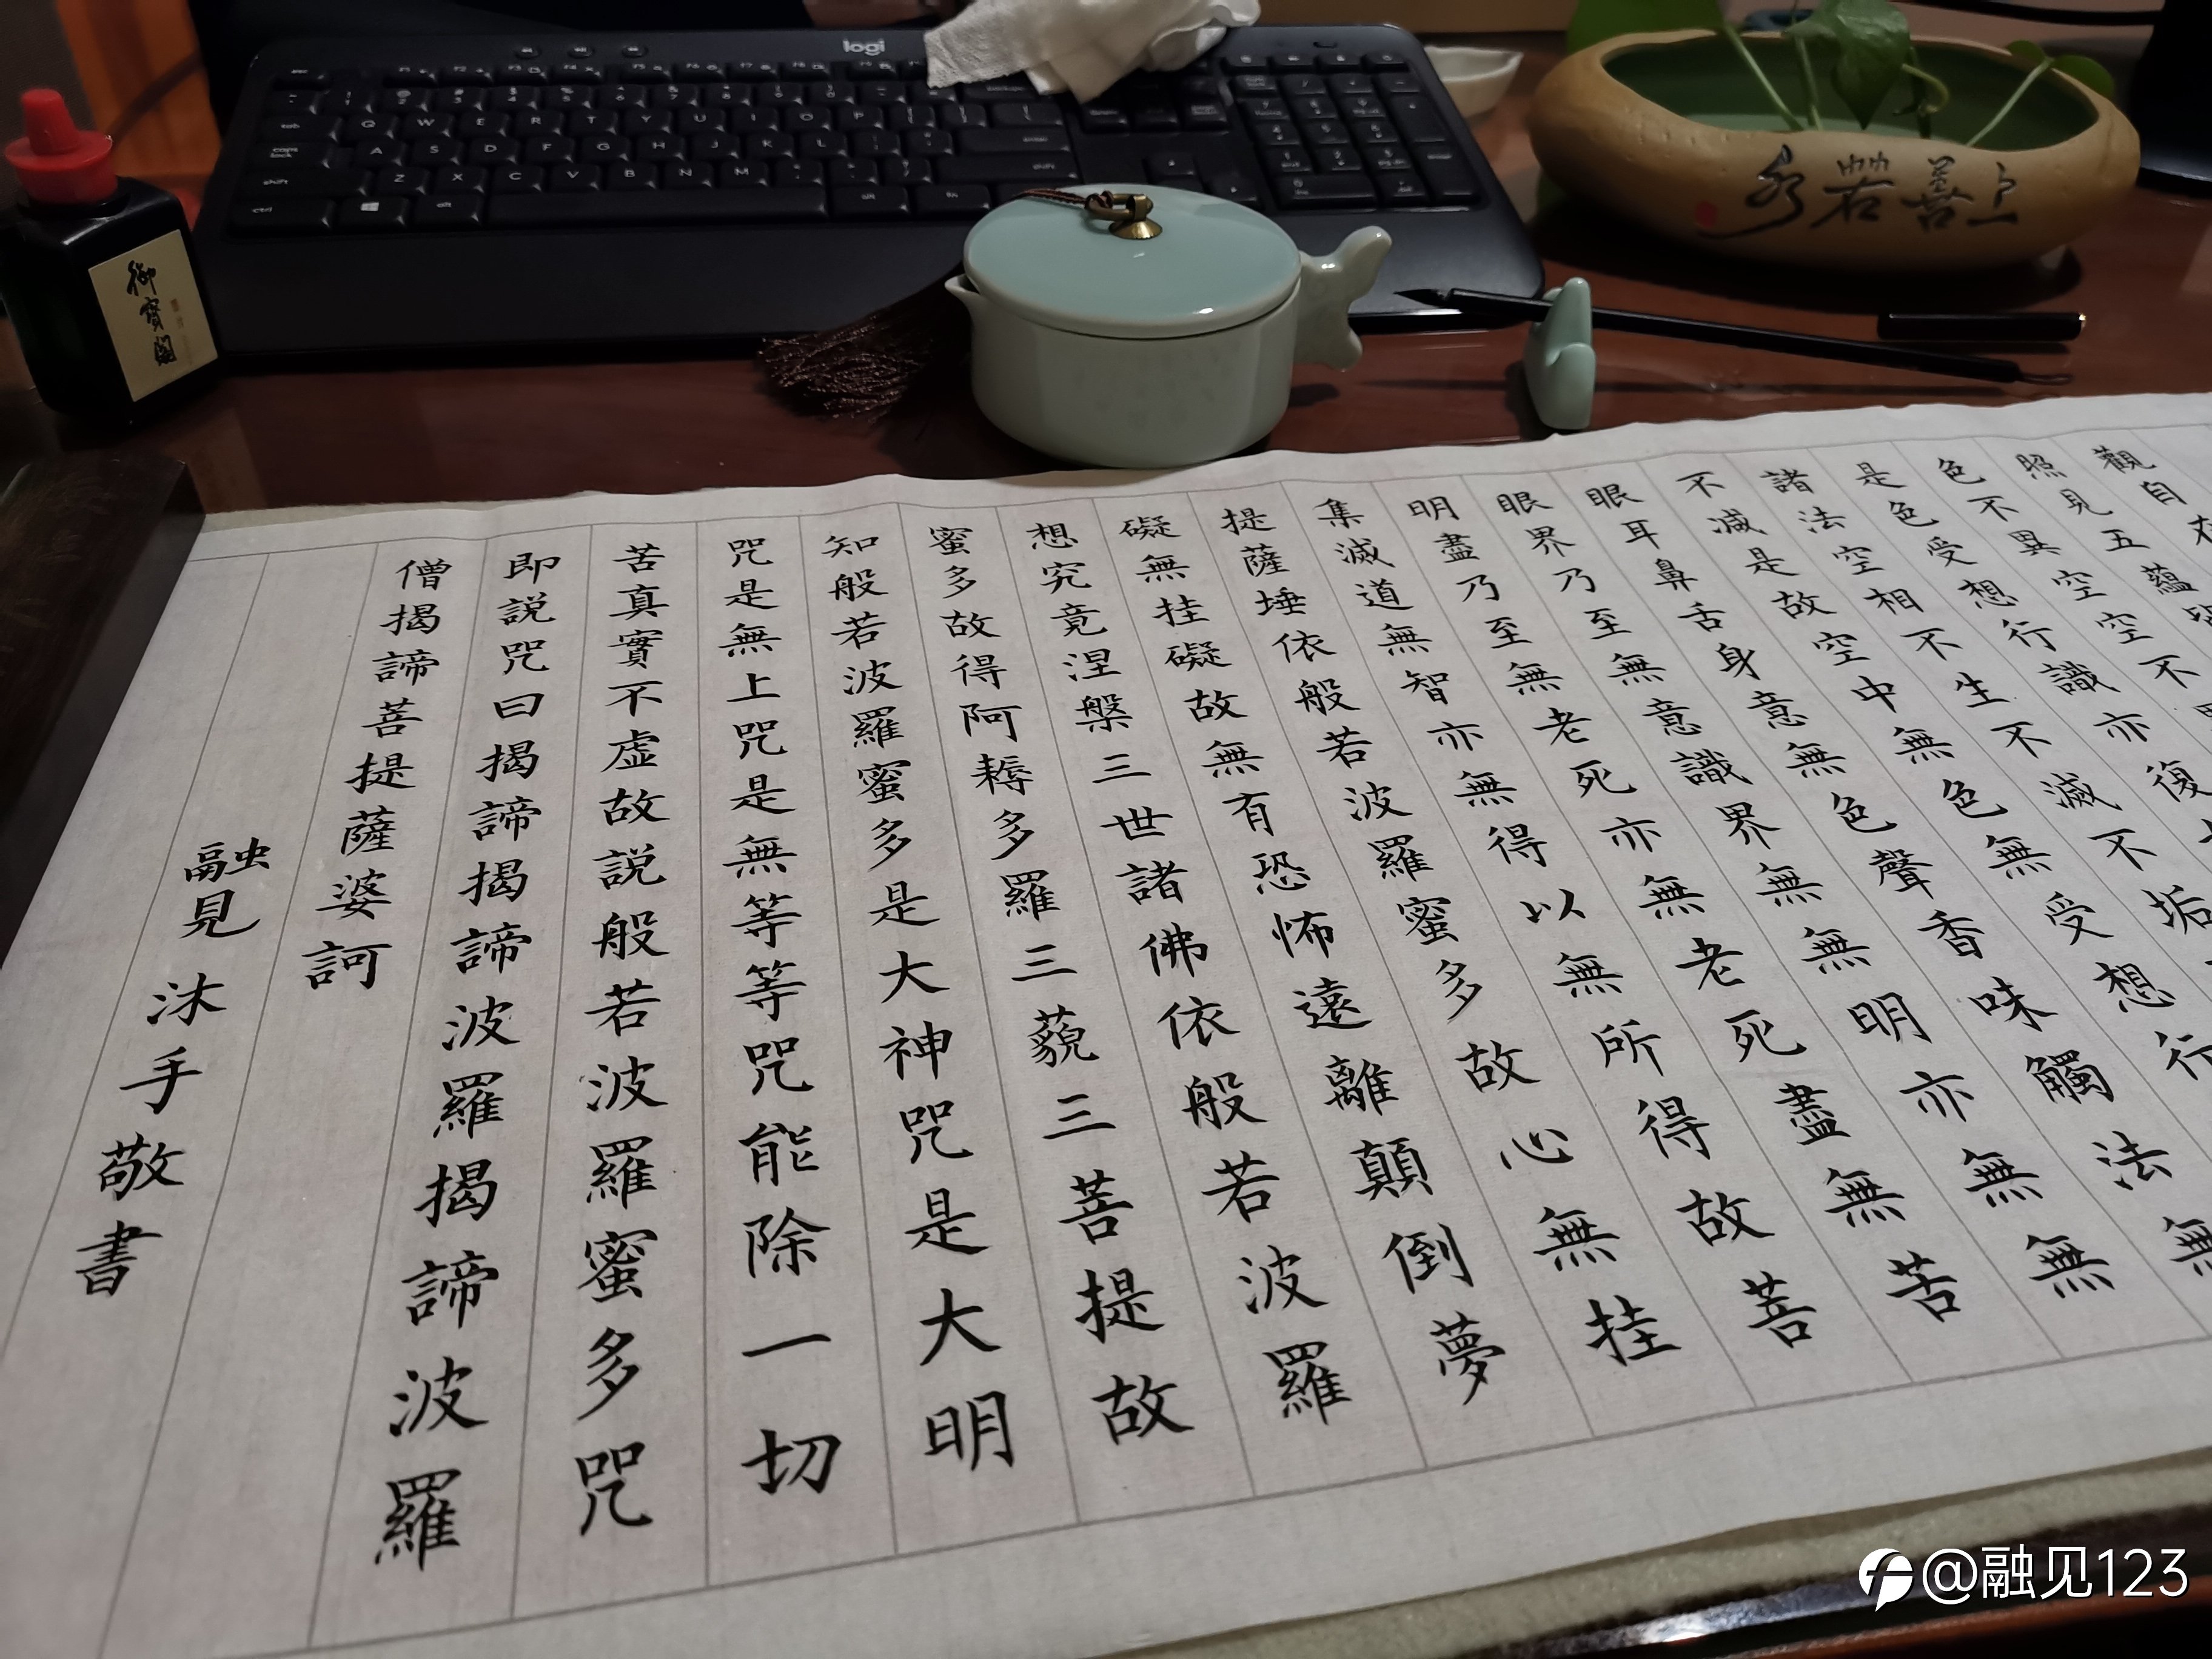 logi
御寶閣
上善若水
觀自在
照見五蘊皆
色不異空空不
是色受想行識亦復
諸法空相不生不滅不垢
不減是故空中無色無受想行
眼耳鼻舌身意無色聲香味觸法無
眼界乃至無意識界無無明亦無無
明盡乃至無老死亦無老死盡無苦
集滅道無智亦無得以無所得故菩
提薩埵依般若波羅蜜多故心無挂
礙無挂礙故無有恐怖遠離顛倒夢
想究竟涅槃三世諸佛依般若波羅
蜜多故得阿耨多羅三藐三菩提故
知般若波羅蜜多是大神咒是大明
咒是無上咒是無等等咒能除一切
苦真實不虛故説般若波羅蜜多咒
即説咒曰揭諦揭諦波羅揭諦波羅
僧揭諦菩提薩婆訶
融見沐手敬書
@融见123